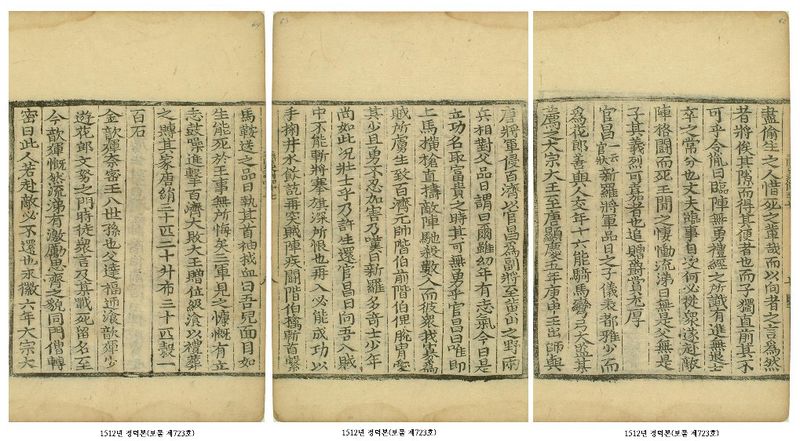 盡偷生之人惜死之輩哉而以向者之言爲然
若將俟其隙而得其便者也而子獨直前其不
可乎令胤曰臨陣無勇禮經之所識有進無退士
卒之常分也丈夫臨事自决何必從衆遂赴敵
陣格鬪而死王聞之悽慟流涕曰無是父無是
子其義烈可嘉者也追贈爵賞尤厚
官昌一云官狀新羅將軍品日之子儀表都雅少而
爲花郎善與人交年十六能騎馬彎弓大監某
薦之大宗大王至唐顯慶五年庚申王出師與
唐將軍侵百濟以官昌爲副將至黃山之野兩
兵相對父品日謂曰爾雖幼年有志氣今日是
立功名取富貴之時其可無勇乎官昌曰唯即
上馬橫槍直擣敵陣馳殺數人而彼衆我寡爲
賊所虜生致百濟元帥階伯前階伯俾脫胄愛
其少且勇不忍加害乃嘆曰新羅多奇士少年
尚如此况壯士乎乃許生還官昌曰向吾入賊
中不能斬將搴旗深所恨也再入必能成功以
手掬井水飮訖再突賊陣疾鬪階伯擒斬首繫
馬鞍送之品日執其首袖拭血曰吾兒面目如
生能死於王事無所悔矣三軍見之慷慨有立
志鼓噪進擊百濟大敗大王贈位級飡以禮葬
之賻其家唐絹三十匹二十升布三十匹穀一
百石
金歆運奈密王八世孫也父達福迊飡歆運少
遊花郎文努之門時徒衆言及某戰死留名至
今歆運慨然流涕有激勵思齊之貌同門僧轉
密曰此人若赴敵必不還也永徽六年大宗大
1512년 정덕본(보물 제723호)
1512년 정덕본(보물 제723호)
1512년 정덕본(보물 제723호)